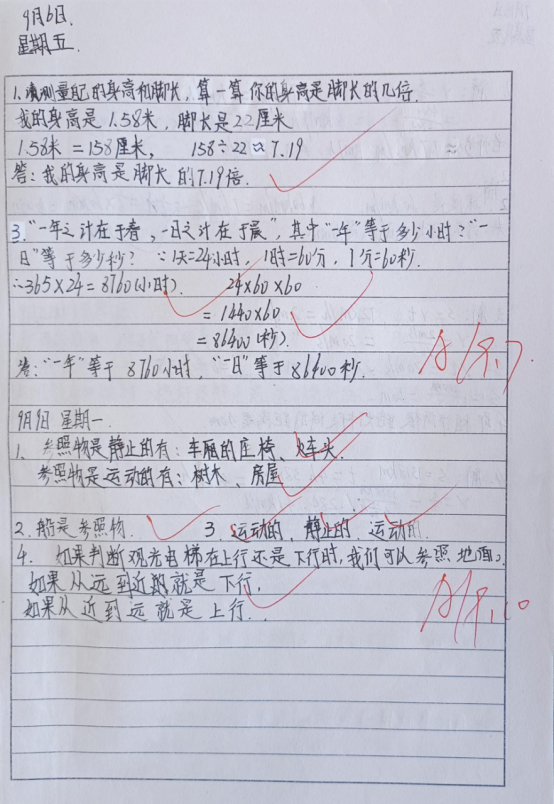 9月6日.
星期五.
1.测量自己的身高和脚长,算一算你的身高是脚长的几倍.
我的身高是1.58米,脚长是22厘米
1.58米=158厘米, 158÷22≈7.19
答:我的身高是脚长的7.19倍.
3.“一年之计在于春,一日之计在于晨”,其中“一年”等于多少小时?“一
日”等于多少秒? ∵1天=24小时,1时=60分,1分=60秒.
∴365×24=8760(小时). 24×60×60
=1440×60
=86400(秒).
答:“一年”等于8760小时,“一日”等于86400秒.
A 9.7
9月9日 星期一.
1. 参照物是静止的有:车厢的座椅、火车头.
参照物是运动的有:树木、房屋
2.船是参照物. 3.运动的、静止的、运动的.
4. 如果判断观光电梯在上行还是下行时,我们可以参照地面。
如果从远到近的就是下行,
如果从近到远就是上行.
A 9.10